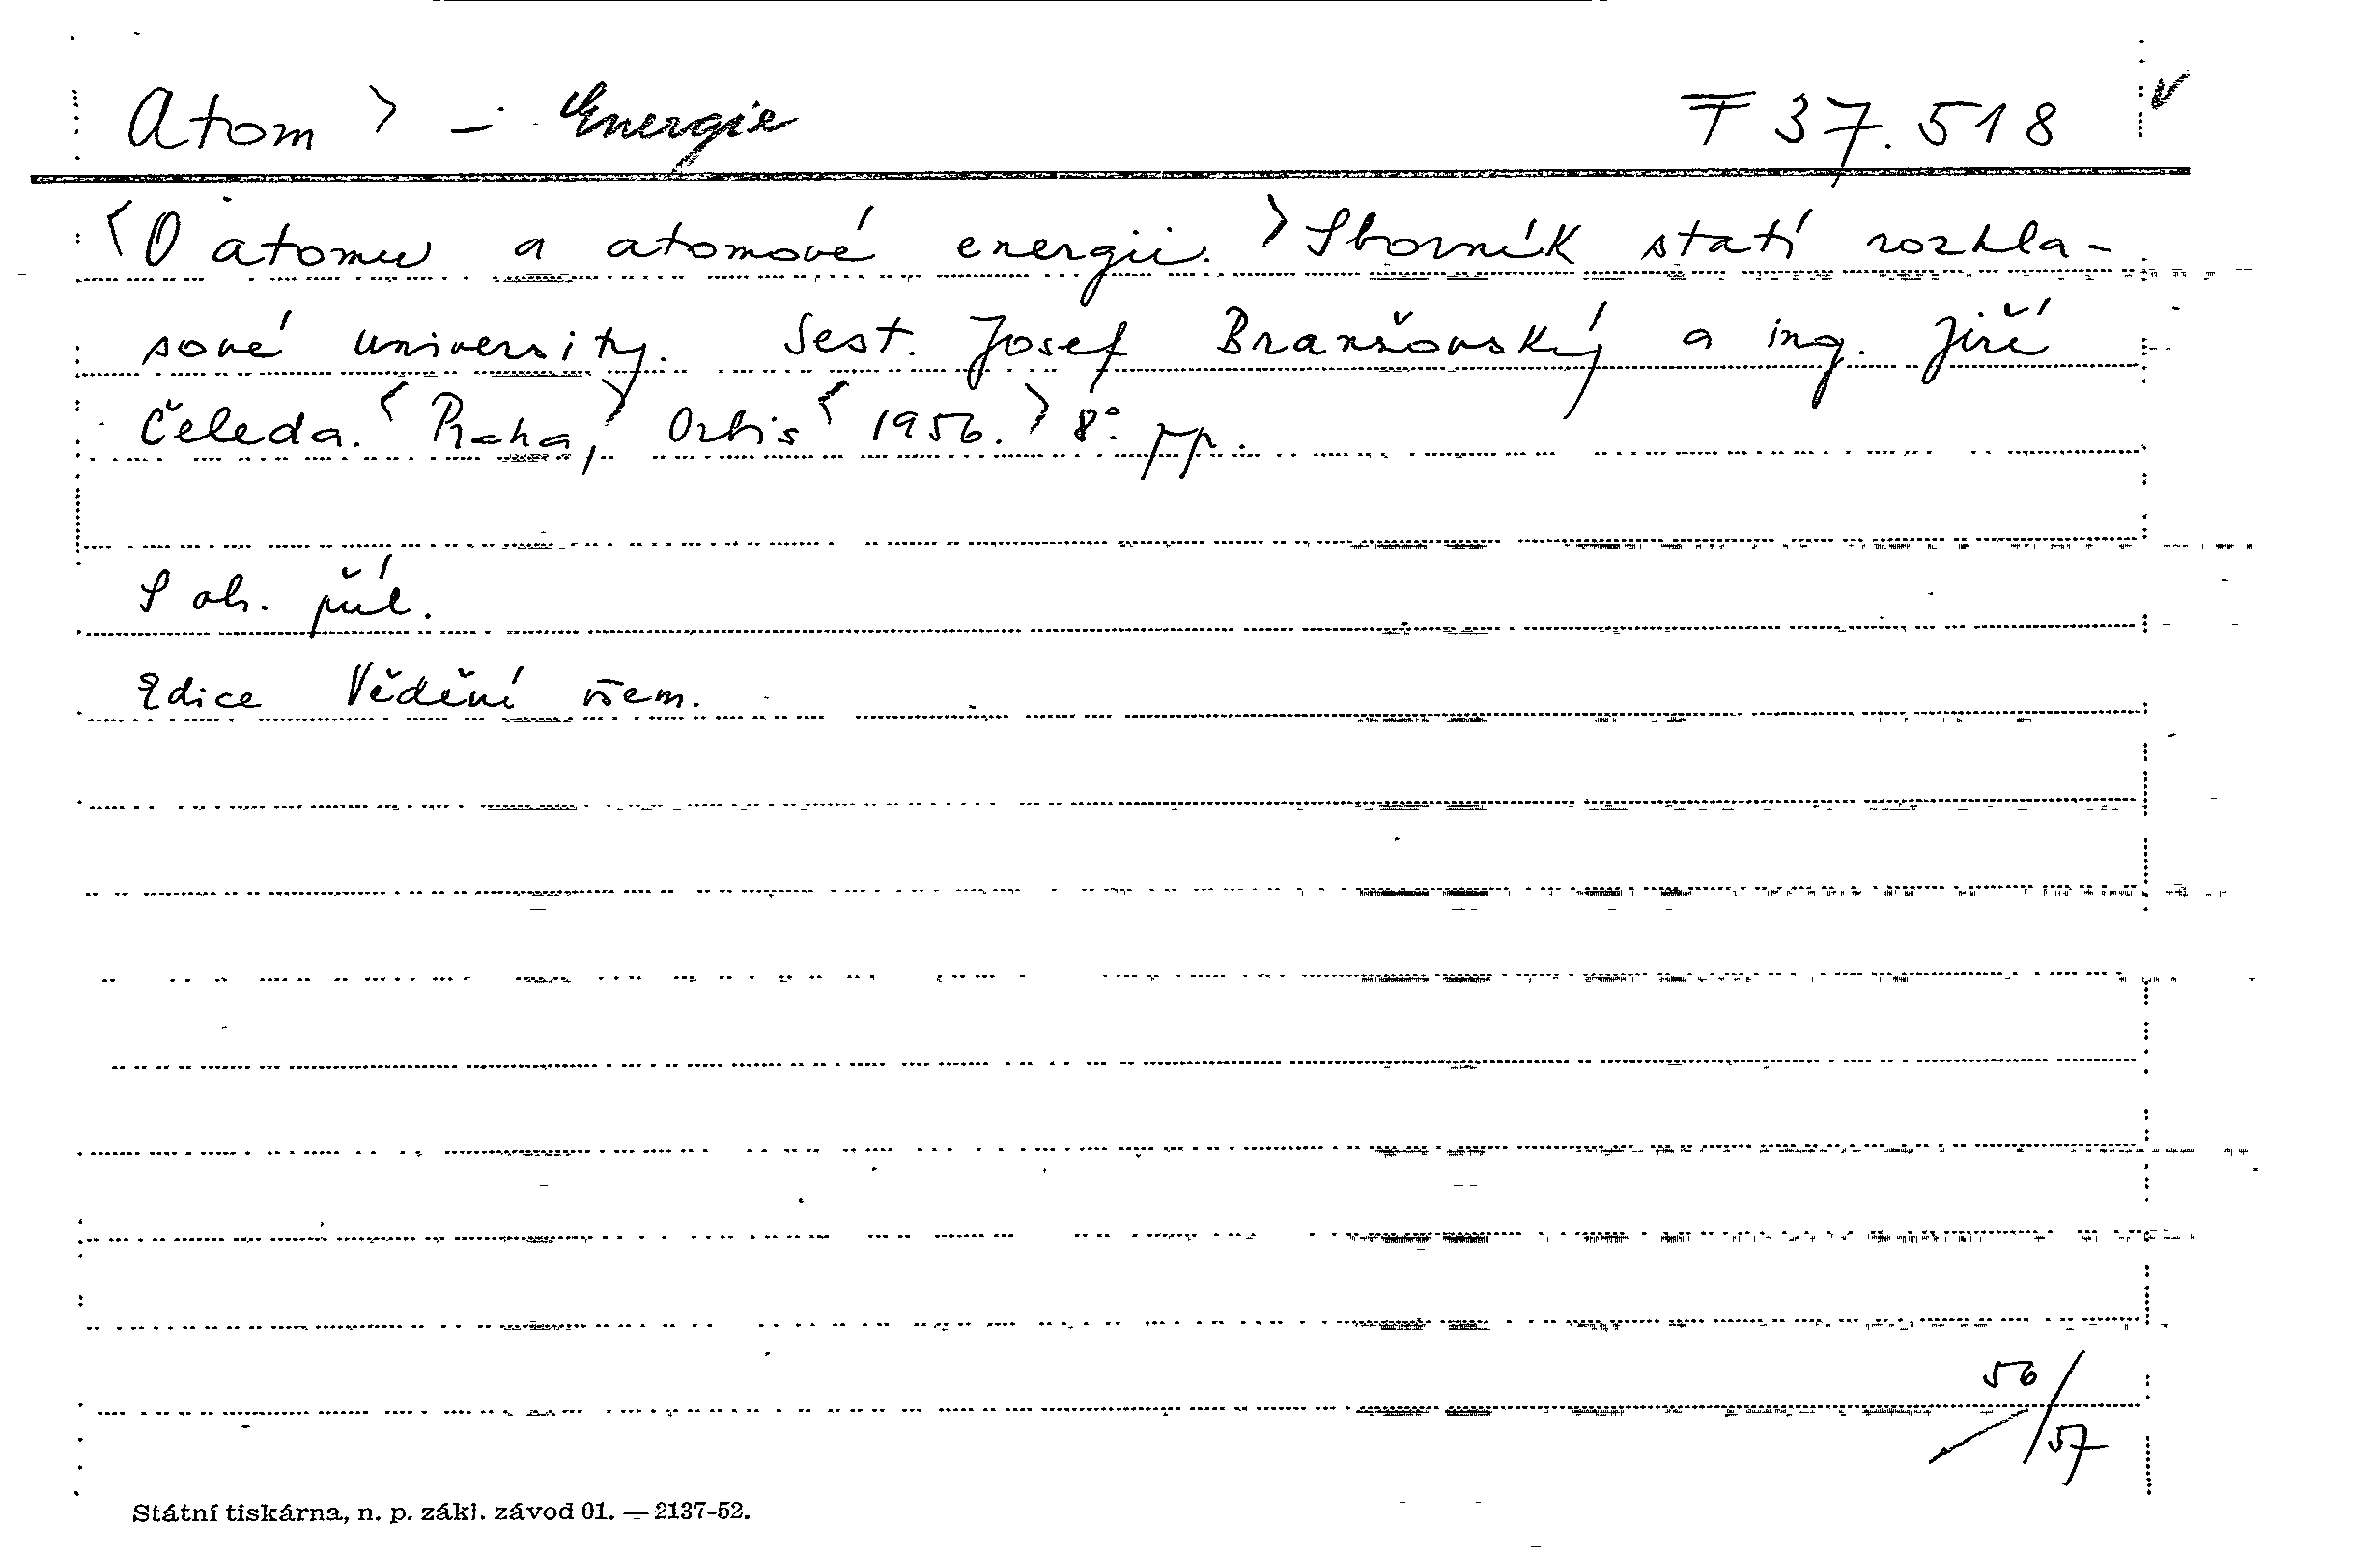 Atom > - Energie T 37.518 v
<O atomu a atomové energii.> Sborník statí rozhla-
sové university. Sest. Josef Branžovský a ing. Jiří
Čeleda. <Praha,> Orbis <1956.> 8°. pp.
S ob. příl.
Edice Vědění všem.
56/57
Státní tiskárna, n. p. zákl. závod 01. — 2137-52.